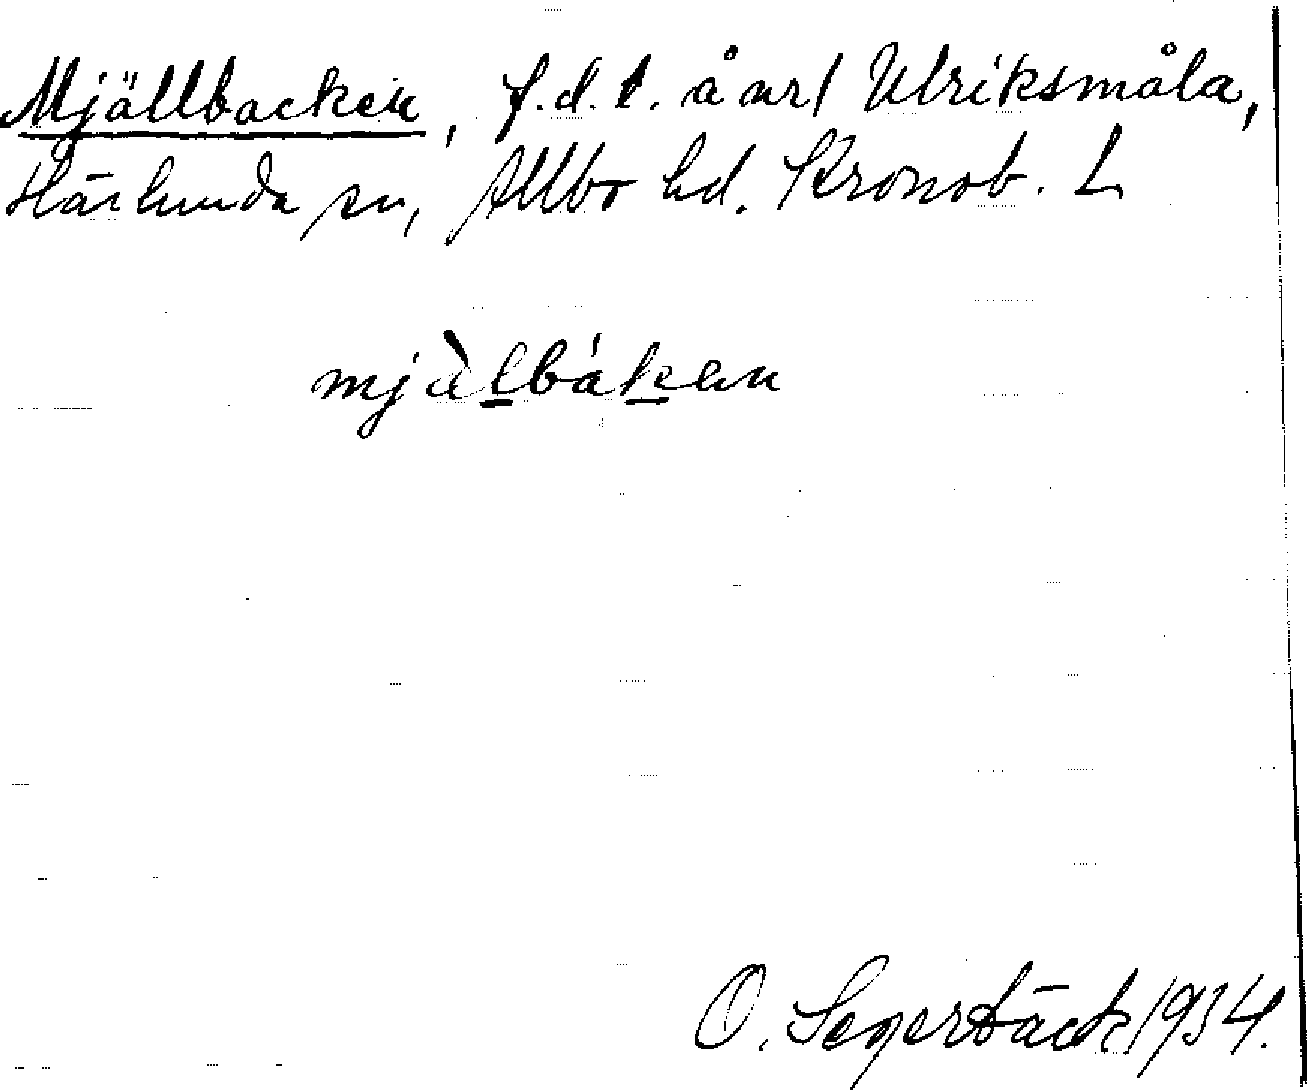 Mjällbacken, f.d.t. å mrl Ulriksmåla,
Härlunda sn, Allbo hd. Kronob. L
mjàlbákan
O. Segerbäck 1934.